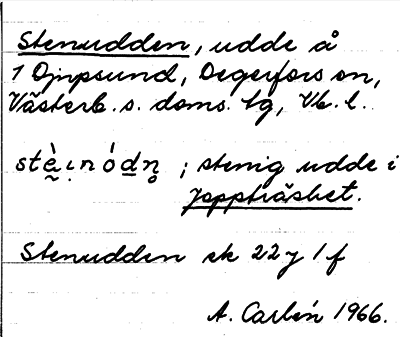 Stenudden, udde å
1 Öjnpsund, Degerfors sn,
Västerb. s. doms. tg, Vb. l.
stè̤ịnódn̥ ; stenig udde i
Joppträsket.
Stenudden ek 22 y 1 f
A. Carlén 1966.